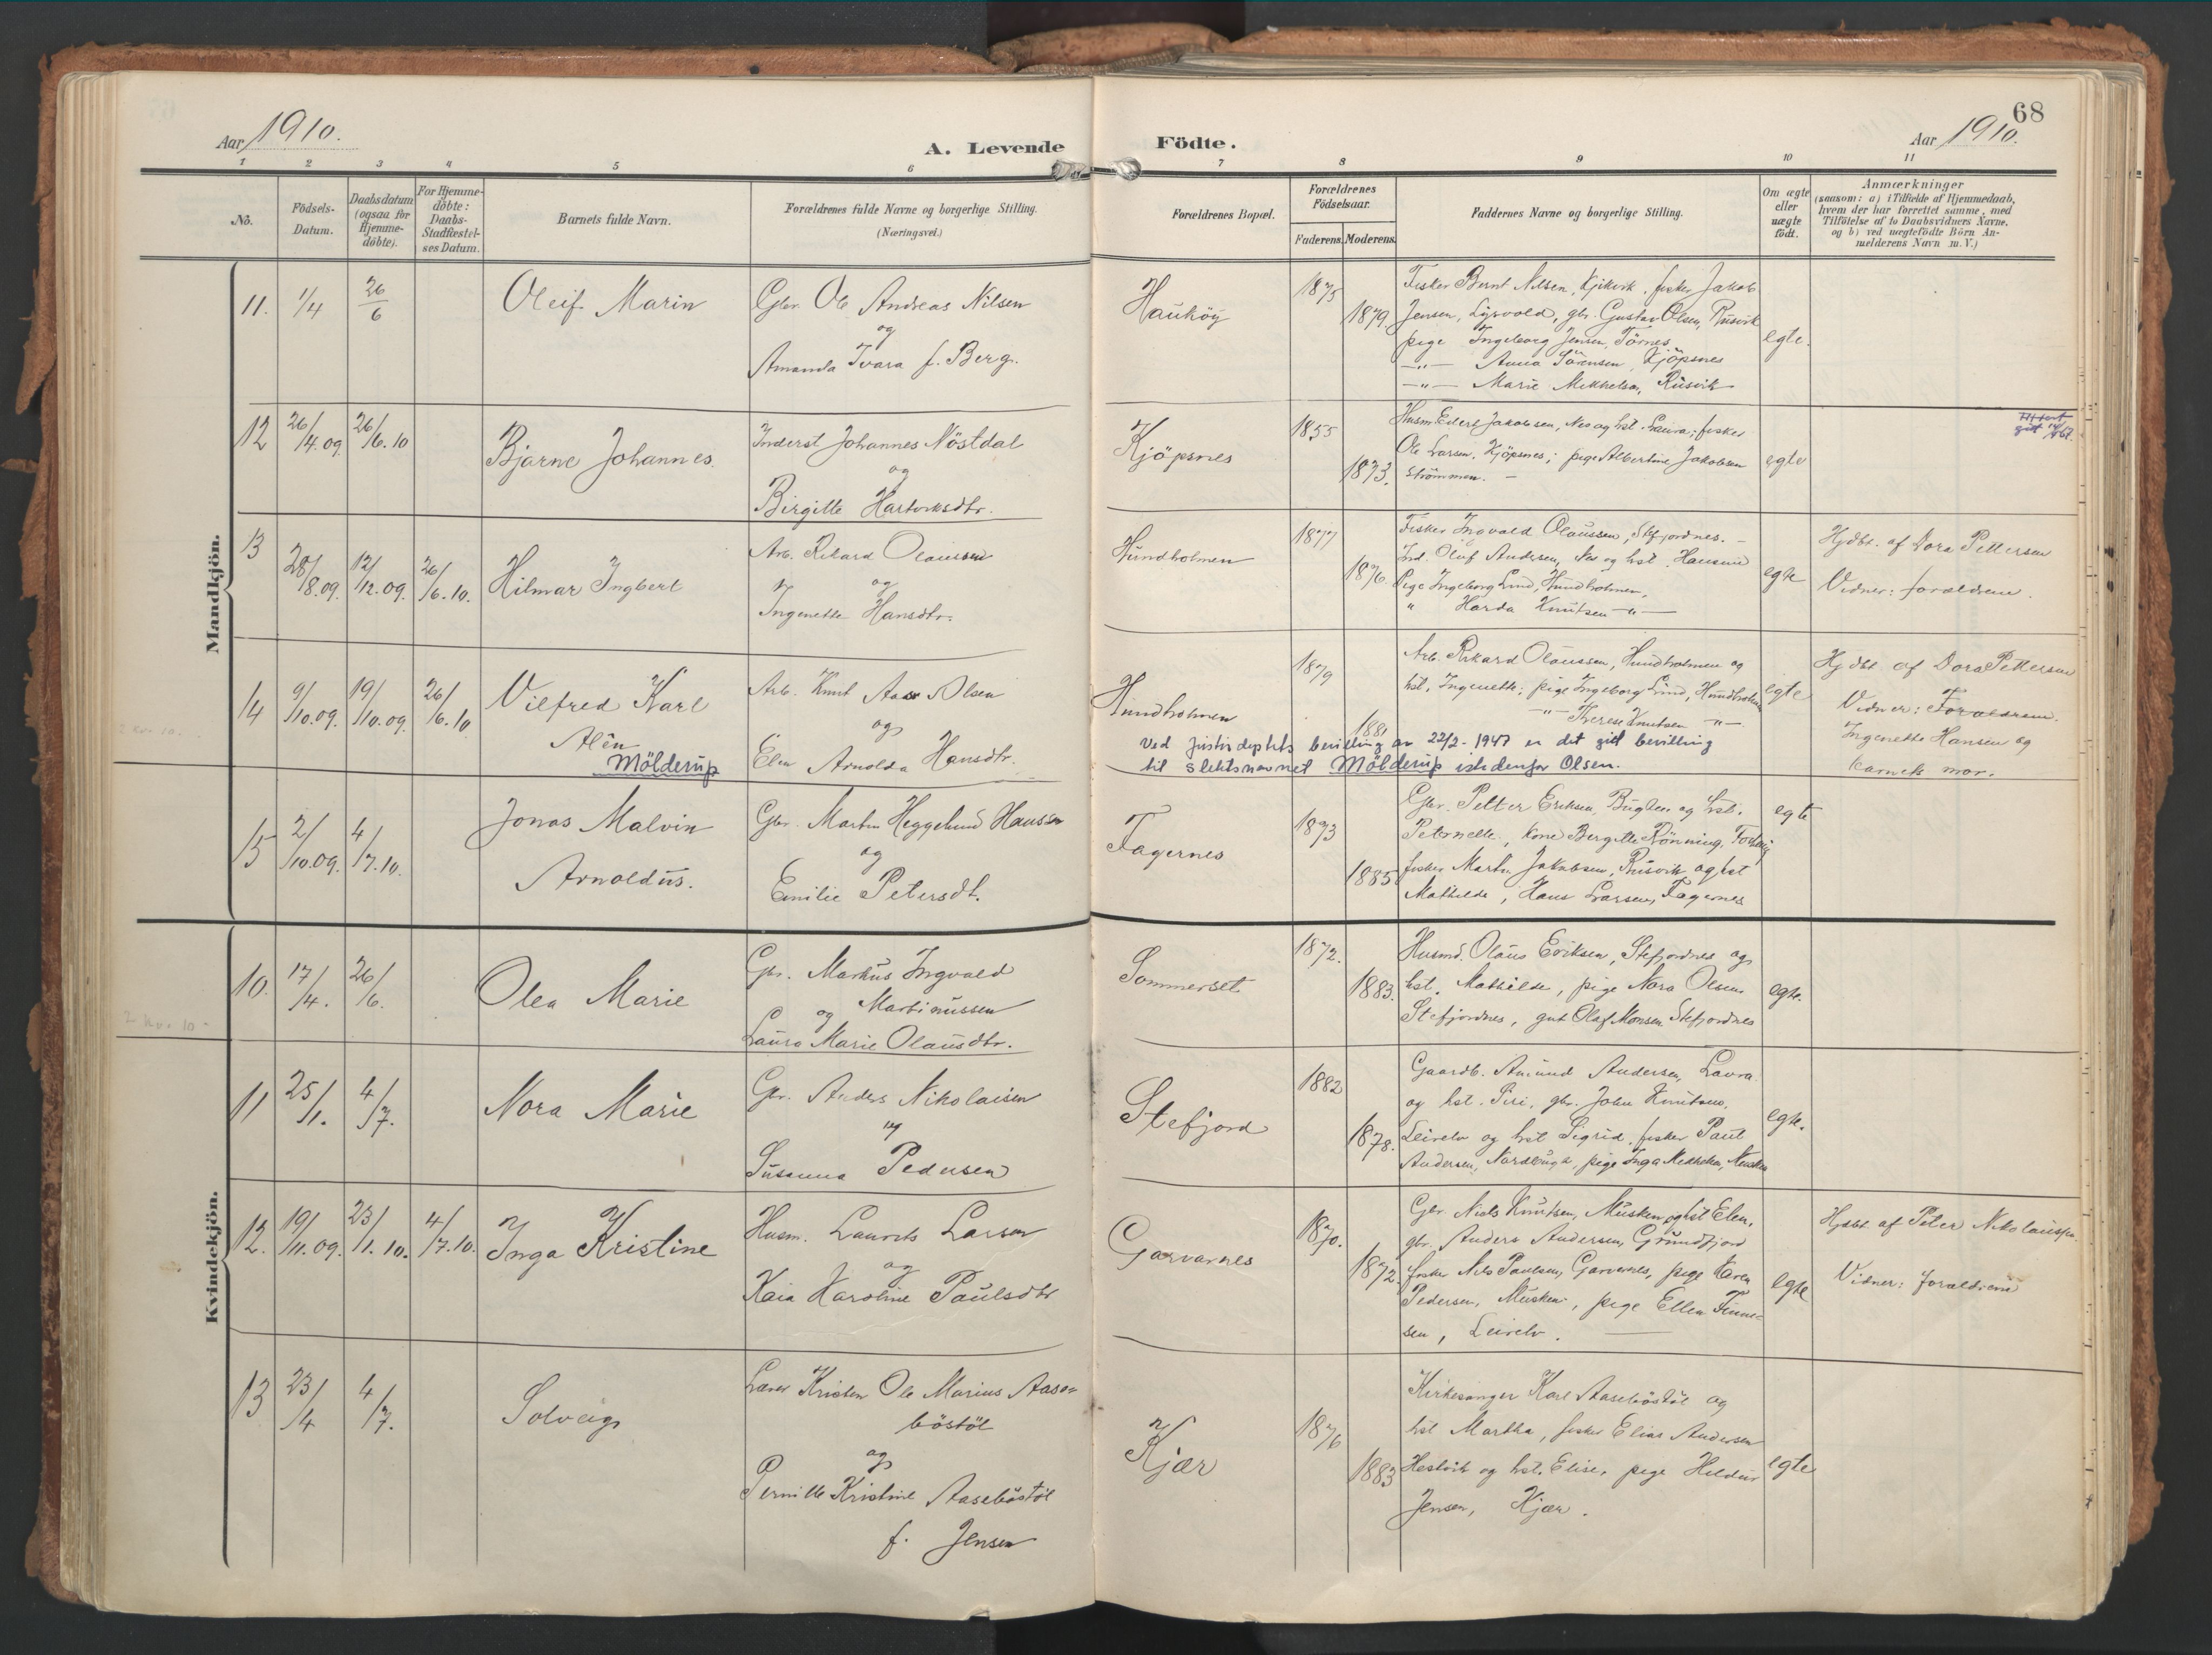 68
Aar 1910.
A. Levende
Födte.
Aar 1910.
1 2 3 4 5 6 7 8 9 10 11
No.
Födsels-
Datum.
Daabsdatum
(ogsaa for
Hjemme-
döbte).
For Hjemme-
döbte:
Daabs-
Stadfæstel-
ses Datum.
Barnets fulde Navn.
Forældrenes fulde Navne og borgerlige Stilling.
(Næringsvei.)
Forældrenes Bopæl.
Forældrenes
Födselsaar.
Faderens. Moderens.
Faddernes Navne og borgerlige Stilling.
Om ægte
eller
uægte
födt.
Anmærkninger
(saasom: a) i Tilfælde af Hjemmedaab,
hvem der har forrettet samme, med
Tilföielse af to Daabsvidners Navne,
og b) ved uægtefödte Börn An-
melderens Navn m. V.)
Mandkjön.
11. 1/4 26/6
Oleif Marin
Gbr. Ole Andreas Nilsen
og
Amanda Ivara f. Berg.
Hauköy
1875
1879.
Fisker Bernt Nilsen, Kjikvik, fisker Jakob
Jensen, Lysvold, gbr. Gustav Olsen, Rusvik
pige Ingeborg Jensen, Törnes
—"— Anna Sörensen, Kjöpsnes
—"— Marie Mikkelsen, Rusvik
egte.
12 26/4.09. 26/6.10
Bjarne Johannes.
Inderst Johannes Nöstdal
og
Birgitte Hartviksdtr.
Kjöpsnes
1855
1873.
Husm Edert Jakobsen, Nes og hst. Laura; fisker
Ole Larsen, Kjöpsnes; pige Albertine Jakobsen
Strömmen. —
egte
13 28/8.09. 12/12.09. 26/6.10.
Hilmar Ingbert
Arb. Rikard Olaussen
og
Ingenette Hansdtr.
Hundholmen
1877
1876.
Fisker Ingvald Olaussen, Stefjordnes. —
Ind. Oluf Andersen, Nes og hst. Hansine
Pige Ingeborg Lind, Hundholmen,
" Harda Knutsen —"—
egte
Hjdbt. af Dora Pettersen
Vidner: forældrene.
14 9/10.09. 19/10.09. 26/6.10
Vilfred Karl
Alên
Mölderup
Arb. Knut Aase Olsen
og
Elen Arnolda Hansdtr.
Hundholmen
1879
1881
Arb. Rikard Olaussen, Hundholmen og
hst. Ingenette; pige Ingeborg Lind, Hundholmen
—"— Therese Knutsen —"—
egte
Hjdbt af Dora Pettersen
Vidner: Forældrene.
Ingenette Hansen og
barnets mor.
Ved Justisdeptets bevilling av 22/2-1947 er det gitt bevilling
til slektsnavnet Mölderup istedenfor Olsen.
15 2/10.09. 4/7.10.
Jonas Malvin
Arnoldus.
Gbr. Martin Heggelund Hansen
og
Emilie Petersdt.
Fagernes
1873
1885
Gbr. Petter Eriksen, Bugten og hst.
Peternelle, kone Bergitte Rönning,
fisker Martin Jakobsen, Rusvik og hst
Mathilde, Hans Larsen, Fagernes
egte
Kvindekjön.
2 Kv. 10.
10. 17/4. 26/6.
Olea Marie
Gbr. Markus Ingvald
Martinussen
og
Laura Marie Olausdtr.
Sommerset
1872.
1883.
Husmd. Olaus Eriksen, Stefjordnes og
hst. Mathilde, pige Nora Olsen
Stefjordnes, gut Olaf Monsen Stefjordnes
egte.
11 25/1. 4/7.
Nora Marie
Gbr. Anders Nikolaisen
og
Susanna Pedersen
Stefjord
1882
1878.
Gaardb. Amund Andersen, Lavra
og hst. Piri, gbr. John Knutsen,
Leirelv og hst Sigrid, fisker Paul
Andersen, Nordbugt, pige Inga Mikkelsen, Musken
egte.
12. 19/11.09. 23/1.10. 4/7.10.
Inga Kristine
Husm. Laurits Larsen
og
Kaia Karoline Paulsdtr
Garvarnes
1870.
1872.
Gbr. Niels Knutsen, Musken og hst Elen,
gbr. Anders Andersen, Grundfjord
fisker Nils Paulsen, Garvernes, pige Karen
Pedersen, Musken, pige Ellen Finne-
sen, Leirelv.
egte
Hjdbt af Peter Nikolaisen.
Vidner: forældrene
13 23/4 4/7.
Solveig
Lærer Kristen Ole Marius Aase-
böstöl
og
Pernille Kristine Aaseböstöl
f. Jensen
Kjær
1876
1883
Kirkesanger Karl Aaseböstöl og
hst Martha, fisker Elias Andersen
Hestvik og hst. Elise, pige Heldur
Jensen, Kjær.
egte